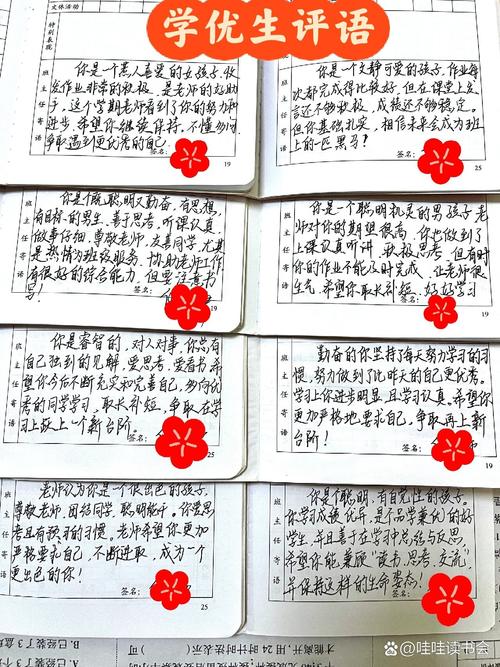 学优生评语
文体活动
特别表现
班主任寄语
你是一个惹人喜爱的女孩子,收
发作业非常的积极,是老师的好助
手。这个学期老师看到了你的努力和
进步,希望你继续保持,不懂勤问,
争取遇到更优秀的自己。
签名:
19
班主任寄语
你是一个文静可爱的孩子,作业每
次都完成得比较好,但在课堂上发
言还不够积极,成绩还不够稳定。
但你基础扎实,相信未来会成为班
上的一匹黑马?
签名:
25
班主任寄语
你是个既聪明又勤奋,有思想,
有目标的男生,善于思考,听课认真,
做事仔细,尊敬老师,友善同学,尤其
是热情为班级服务,协助老师工作
有很好的综合能力,但要注意书
写!
签名:
19
班主任寄语
你是一个聪明机灵的男孩子,老
师对你的期望很高,你也做到了
上课认真听讲,积极思考,但有时
你的作业不能及时完成,让老师很
生气,希望你取长补短,好好学习
签名:
班主任寄语
你是睿智的,对人对事,你总有
自己独到的见解,爱思考,爱看书,希
望你今后不断充实和完善自己,多向优
秀的同学学习,取长补短,争取在学
习上跃上一个新台阶。
签名:
班主任寄语
勤奋的你坚持了每天努力学习的习
惯,努力做到了比昨天的自己更优秀。
学习上你进步明显,且学习认真。希望你
更加严格地要求自己,争取再上新
台阶!
签名:
班主任寄语
老师认为你是一个很出色的孩子,
尊敬老师,团结同学,聪明能干。你爱思
考且有预习的习惯。老师希望你更加
严格要求自己,不断进取,成为一个
更出色的你!
签名:
25
班主任寄语
你是个聪明,有自觉性的孩子。
你学习成绩优异,是个品学兼优的好
学生,并且善于在学习中总结与反思
希望你能兼顾“读书、思考、交流”,
并保持这样的生命姿态!
签名:
25
B.已经装了3盒
A.已经装了3
才能离开,用24时计时法表示)
哇哇读书会